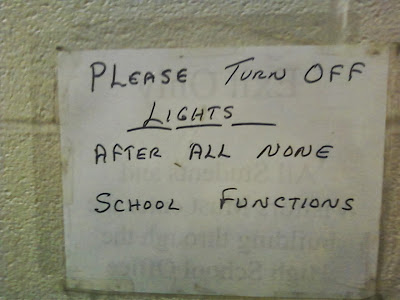 PLEASE TURN OFF
LIGHTS
AFTER ALL NONE
SCHOOL FUNCTIONS